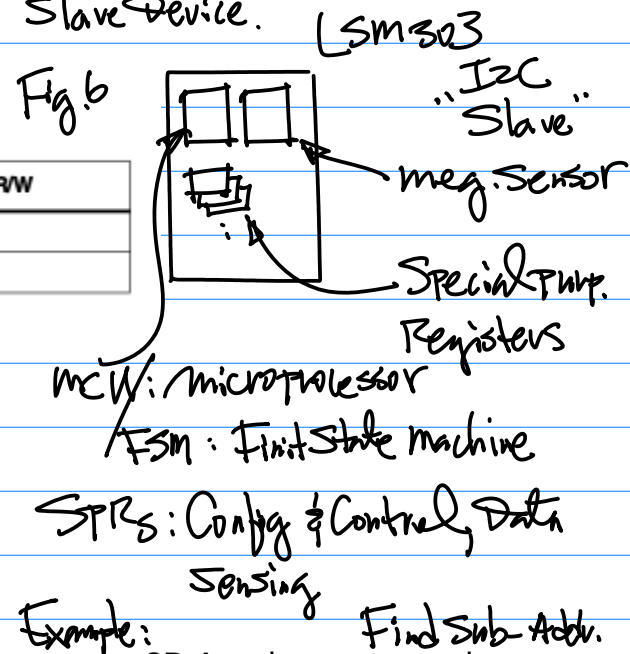 Slave Device.
LSM303
Fig.6
"I2C
Slave"
R/W
meg. Sensor
Special Purp.
Registers
MCU: microprocessor
/FSM: Finit State Machine
SPRs: Config & Control, Data
Sensing
Example: Find Sub-Addr.